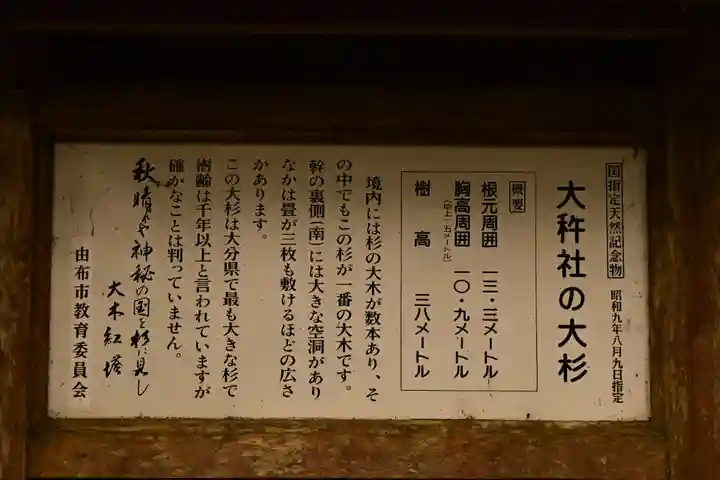 国指定天然記念物 昭和九年八月九日指定
大杵社の大杉
概要
根元周囲 一三・三メートル
胸高周囲 一〇・九メートル
(地上一・五メートル)
樹高 三八メートル
境内には杉の大木が数本あり、そ
の中でもこの杉が一番の大木です。
幹の裏側(南)には大きな空洞があり
なかは畳が三枚も敷けるほどの広さ
があります。
この大杉は大分県で最も大きな杉で
樹齢は千年以上と言われていますが
確かなことは判っていません。
秋晴や神秘の国を杉に見し
大木紅塔
由布市教育委員会